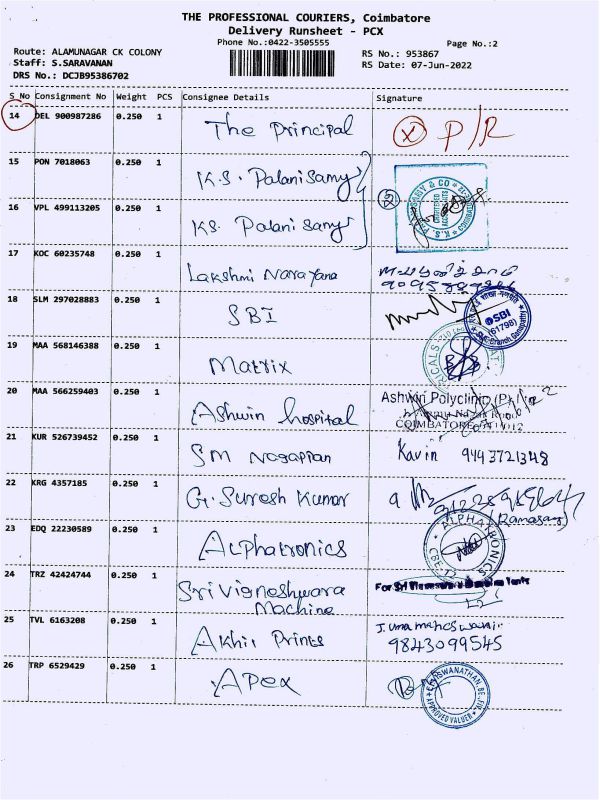 THE PROFESSIONAL COURIERS, Coimbatore
Delivery Runsheet - PCX
Phone No.:0422-3505555
Page No.:2
Route: ALAMUNAGAR CK COLONY
Staff: S.SARAVANAN
DRS No.: DCJB95386702
RS No.: 953867
RS Date: 07-Jun-2022
S No Consignment No Weight PCS Consignee Details Signature
14 DEL 900987286 0.250 1 The Principal X P/R
15 PON 7018063 0.250 1 K.S. Palanisamy
2
16 VPL 499113205 0.250 1 KS. Palanisamy
17 KOC 60235748 0.250 1 Lakshmi Narayana
18 SLM 297028883 0.250 1 SBI
SBI
(61798)
19 MAA 568146388 0.250 1 Matrix
20 MAA 566259403 0.250 1 Ashwin hospital
Ashwin Polyclinic (P)
COIMBATORE
21 KUR 526739452 0.250 1 SM Nagappan Kavin 9443721348
22 KRG 4357185 0.250 1 G. Suresh Kumar
(Ramasamy)
23 EDQ 22230589 0.250 1 Alphatronics
ALPHATRONICS
24 TRZ 42424744 0.250 1 Sri Vigneshwara
Machine
For Sri
25 TVL 6163208 0.250 1 Akhil Prints J. Umamaheswari
9843099545
26 TRP 6529429 0.250 1 Apex
APPROVED VALUER